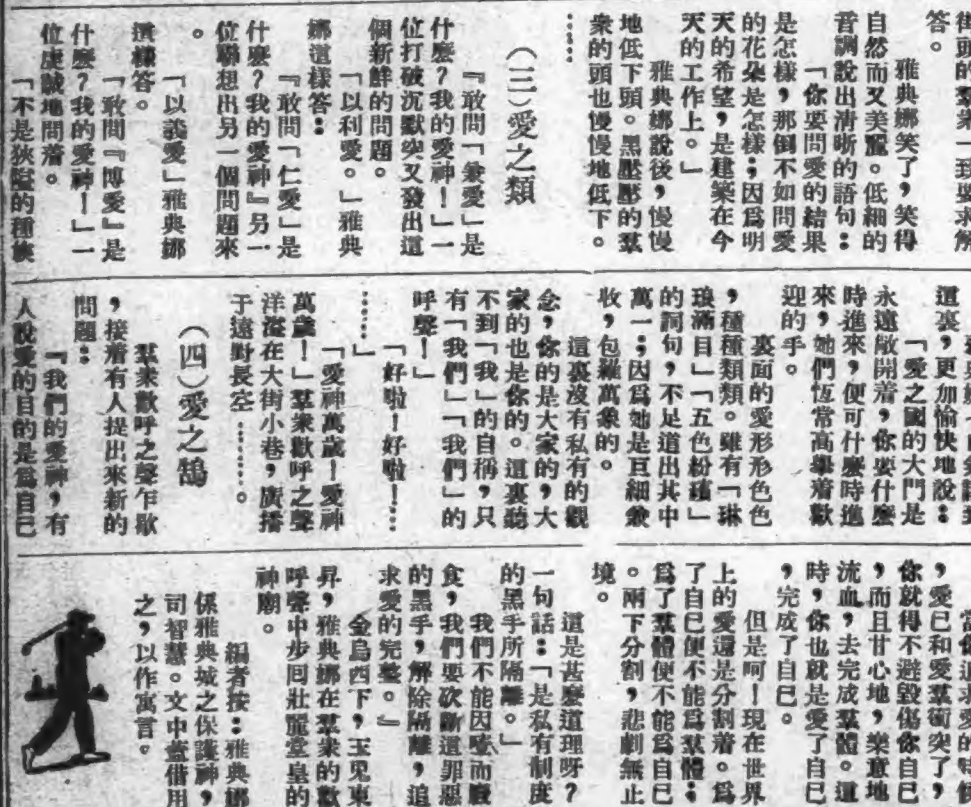 街頭的羣衆一致要求解
答。
雅典娜笑了,笑得
自然而又美麗。低細的
音調說出清晰的語句:
「你要問愛的結果
是怎樣,那倒不如問愛
的花朵是怎樣;因爲明
天的希望,是建築在今
天的工作上。」
雅典娜說後,慢慢
地低下頭。黑壓壓的羣
衆的頭也慢慢地低下。
……
(三)愛之類
『敢問「兼愛」是
什麼?我的愛神!」一
位打破沉默突又發出這
個新鮮的問題。
「以利愛。」雅典
娜這樣答:
『敢問「仁愛」是
什麼?我的愛神』另一
位聯想出另一個問題來
。
「以義愛」雅典娜
這樣答。
「敢問『博愛』是
什麼?我的愛神!」一
位虔誠地問着。
「不是狹隘的種族
這裏,更加愉快地說:
「愛之國的大門是
永遠敞開着,你要什麼
時進來,便可什麼時進
來,她們恆常高舉着歡
迎的手。
裏面的愛形形色色
,種種類類。雖有「琳
琅滿目」「五色粉繽」
的詞句,不足道出其中
萬一;因爲她是巨細斂
收,包羅萬象的。
這裏沒有私有的觀
念,你的是大家的,大
家的也是你的。這裏聽
不到「我」的自稱,只
有「我們」「我們」的
呼聲!」
「好啦!好啦!…
……」
「愛神萬歲!愛神
萬歲!」羣衆歡呼之聲
洋溢在大街小巷,廣播
于遼野長空………。
(四)愛之鵠
羣衆歡呼之聲乍歇
,接着有人提出來新的
問題:
『我們的愛神,有
人說愛的目的是爲自己
當你追求愛的時候
,愛己和愛羣衝突了,
你就得不避毀傷你自己
,而且甘心地,樂意地
流血,去完成羣體。這
時,你也就是愛了自己
,完成了自己。
但是呵!現在世界
上的愛還是分割着。爲
了自己便不能爲羣體;
爲了羣體便不能爲自己
。兩下分割,悲劇無止
境。
這是甚麼道理呀?
一句話:「是私有制度
的黑手所隔離。」
我們不能因噎而廢
食,我們要砍斷這罪惡
的黑手,解除隔離,追
求愛的完整。』
金烏西下,玉兎東
昇,雅典娜在羣衆的歡
呼聲中步囘壯麗堂皇的
神廟。
編者按:雅典娜
係雅典城之保護神,
司智慧。文中蓋借用
之,以作寓言。